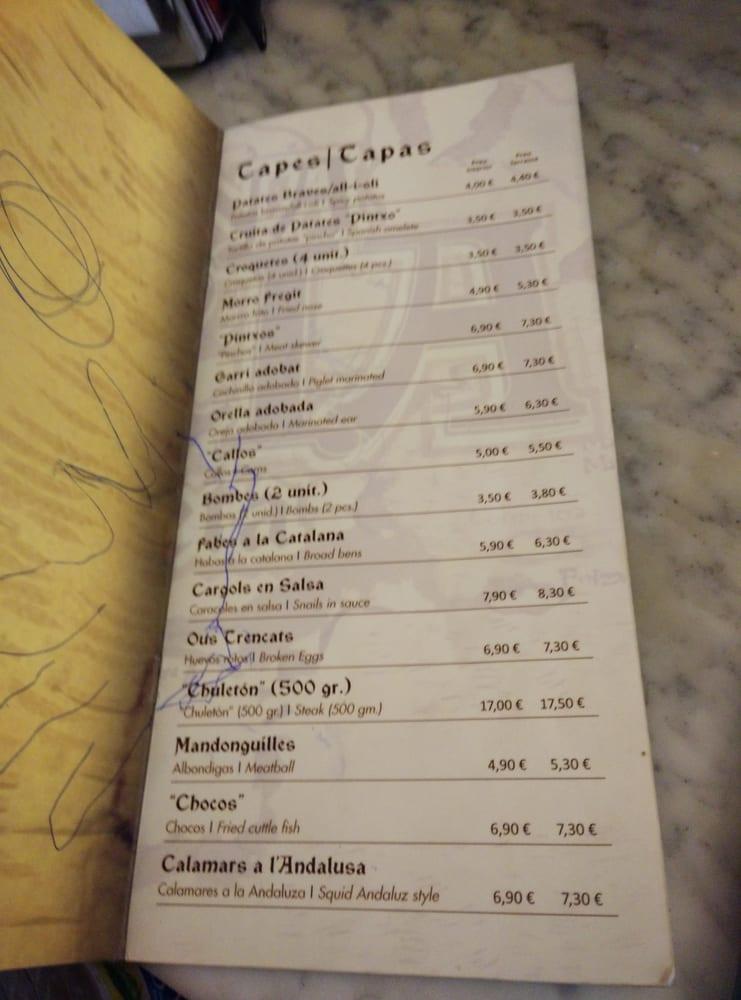 Tapes | Tapas
Preu interior Preu terrassa
Patates Braves/all-i-oli 4,00 € 4,40 €
Patatas bravas/all i oli | Spicy potatos
Truita de Patates "Pintxo" 3,50 € 3,50 €
Tortilla de patatas "pincho" | Spanish omelete
Croquetes (4 unit.) 3,50 € 3,50 €
Croquetas (4 unid.) | Croquettes (4 pcs.)
Morro Fregit 4,90 € 5,30 €
Morro frito | Fried nose
"Pintxos" 6,90 € 7,30 €
"Pinchos" | Meat skewer
Garrí adobat 6,90 € 7,30 €
Cochinillo adobado | Piglet marinated
Orella adobada 5,90 € 6,30 €
Oreja adobada | Marinated ear
"Callos" 5,00 € 5,50 €
Callos |
Bombes (2 unit.) 3,50 € 3,80 €
Bombas (2 unid.) | Bombs (2 pcs.)
Fabes a la Catalana 5,90 € 6,30 €
Habas a la catalana | Broad bens
Cargols en Salsa 7,90 € 8,30 €
Caracoles en salsa | Snails in sauce
Ous Trencats 6,90 € 7,30 €
Huevos rotos | Broken Eggs
"Chuletón" (500 gr.) 17,00 € 17,50 €
"Chuletón" (500 gr.) | Steak (500 gm.)
Mandonguilles 4,90 € 5,30 €
Albondigas | Meatball
"Chocos" 6,90 € 7,30 €
Chocos | Fried cuttle fish
Calamars a l'Andalusa 6,90 € 7,30 €
Calamares a la Andaluza | Squid Andaluz style